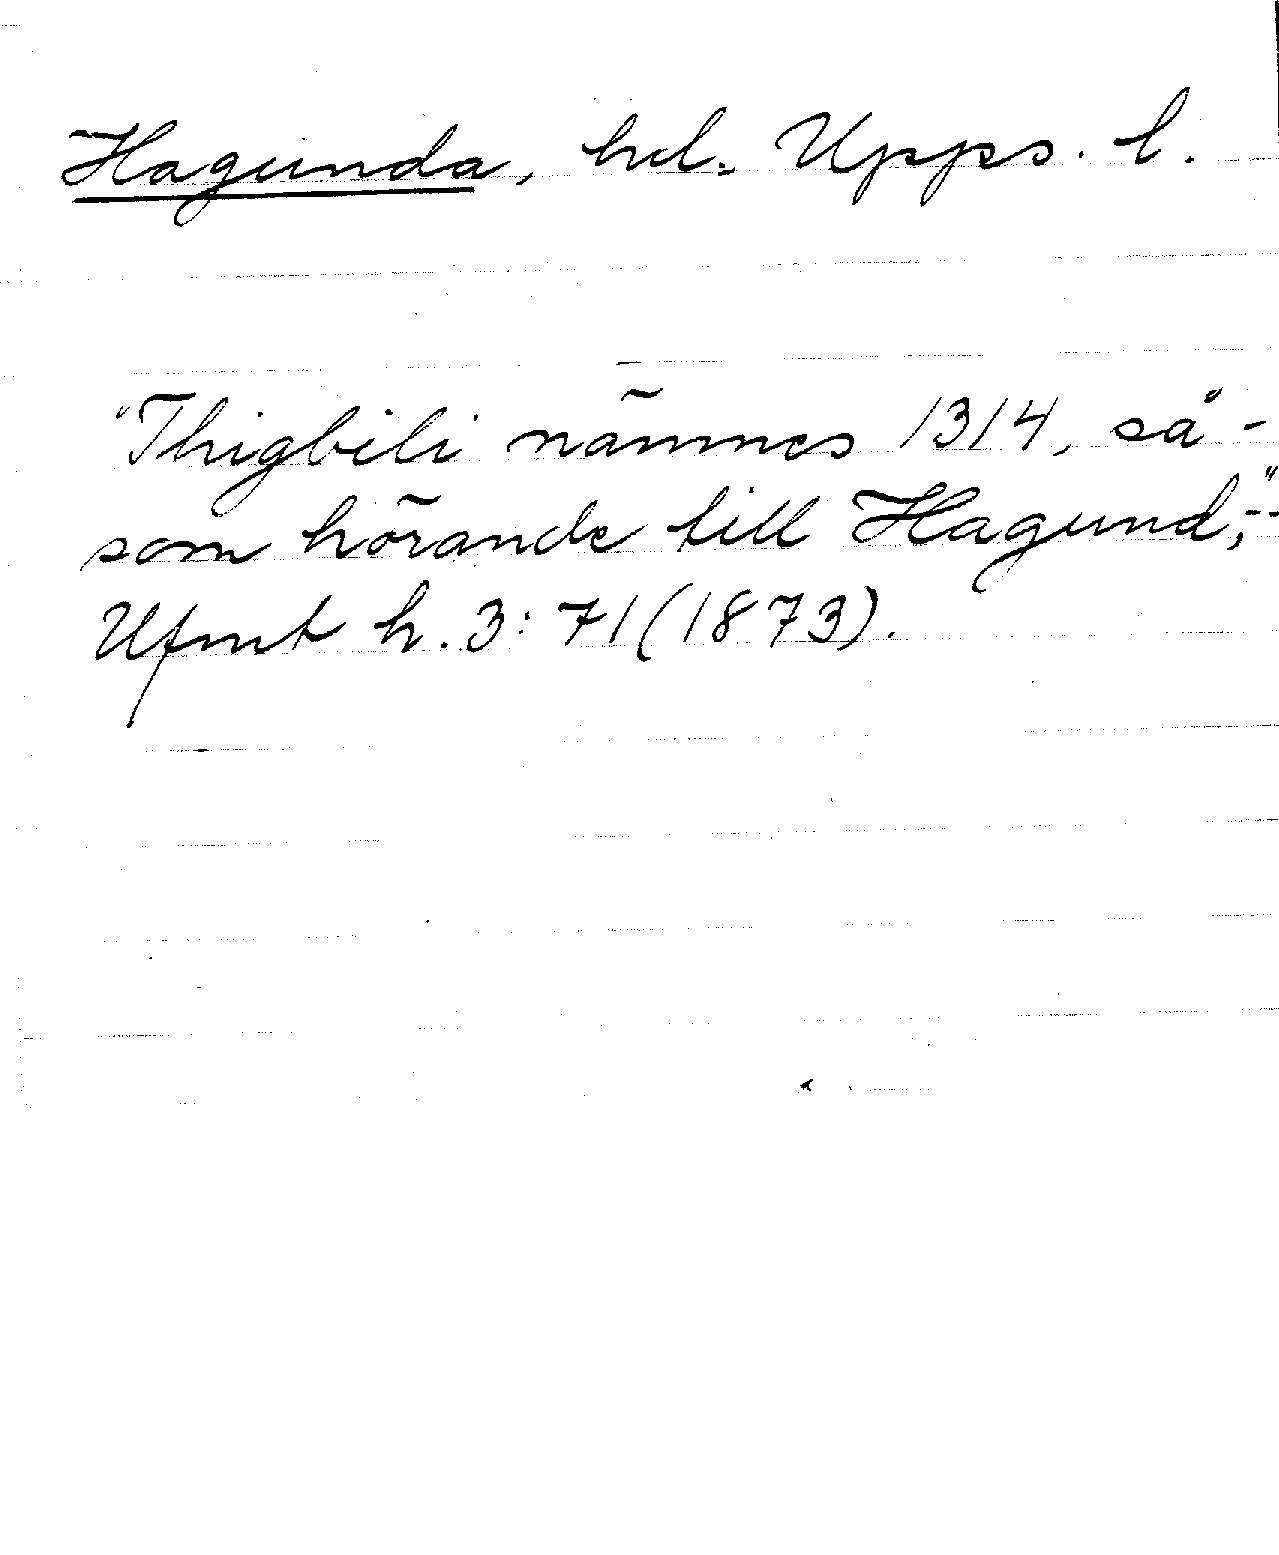 Hagunda, hd. Upps. l.
"Thigbili nämnes 1314, så-
som hörande till Hagund,--"
Ufmt h. 3: 71 (1873).